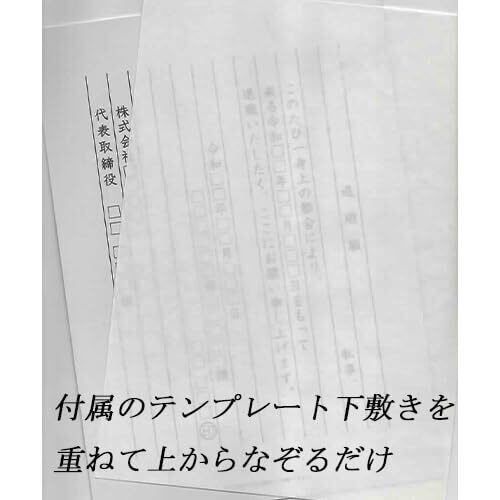 退職願
私事、
このたび一身上の都合により、
来る令和□□年□□月□□日をもって
退職いたしたく、ここにお願い申し上げます。
令和□□年□□月□□日
株式会社
代表取締役 □□
付属のテンプレート下敷きを
重ねて上からなぞるだけ